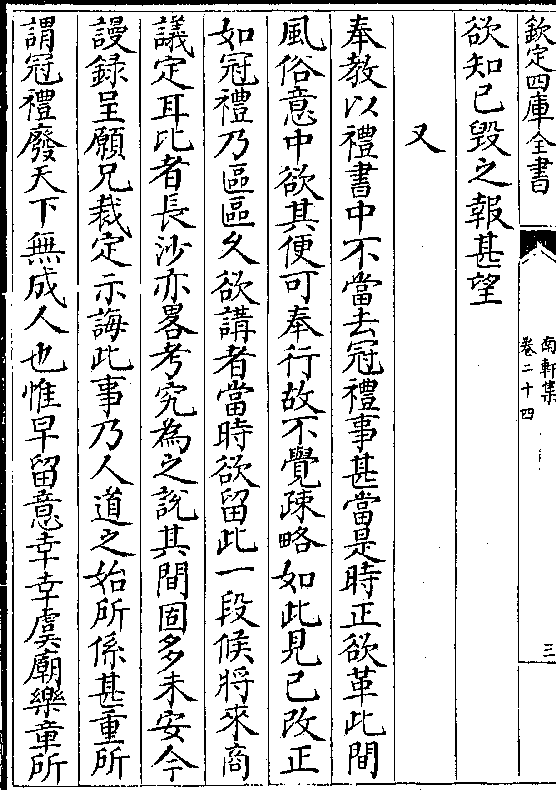 欽定四庫全書
南軒集
卷二十四
三
欲知已毀之報甚望
又
奉教以禮書中不當去冠禮事甚當是時正欲革此間
風俗意中欲其便可奉行故不覺疎略如此見已改正
如冠禮乃區區久欲講者當時欲留此一段候將來商
議定耳比者長沙亦畧考究為之說其間固多未安今
謾録呈願兄裁定示誨此事乃人道之始所係甚重所
謂冠禮廢天下無成人也惟早留意幸幸虞廟樂章所